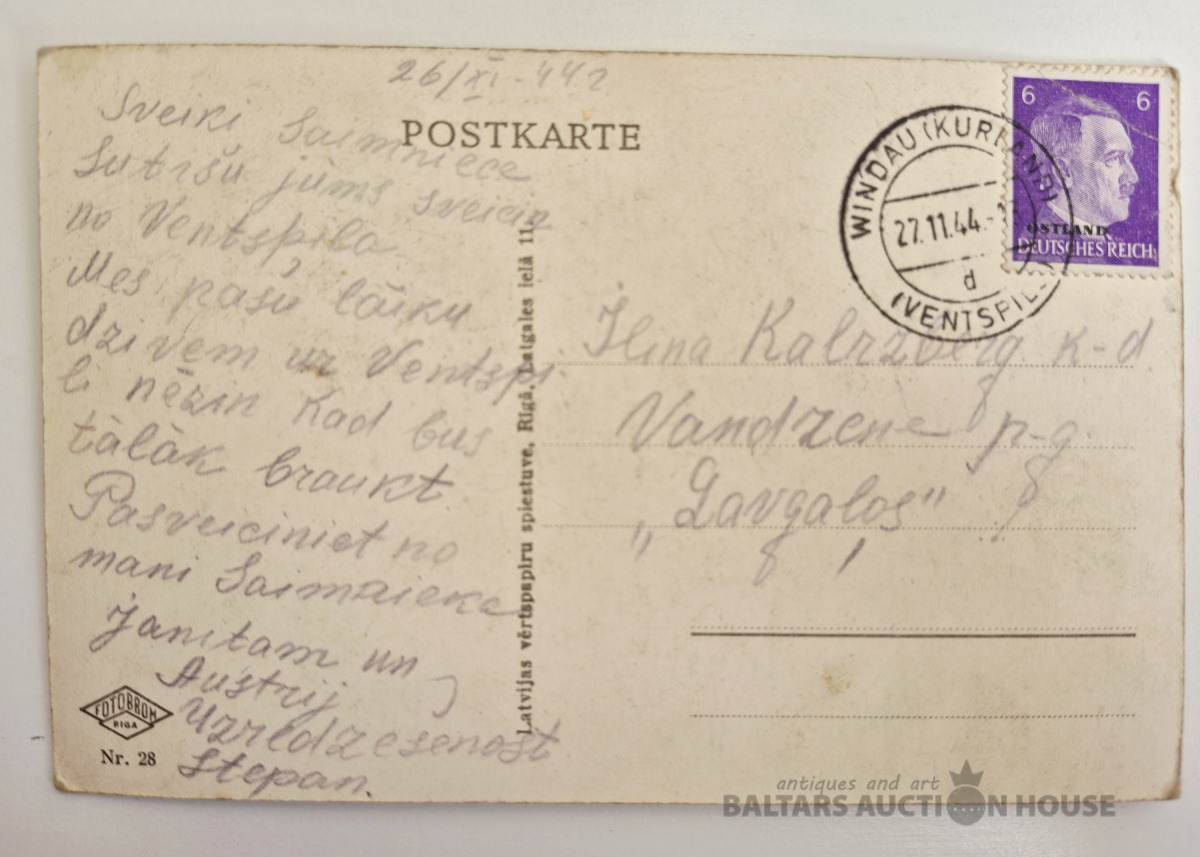 26/XI-44г
POSTKARTE
Sveiki Saimniece
Sutišu jums sveicin
no Ventspila
Mes pašu lāiku
dzivem uz Ventspi-
li nēzin kad bus
tālāk braukt
Pasveiciniet no
mani Saimnieka
Janitam un
Austrij
Uzredzesenošt
Stepan.
FOTOBROM
RIGA
Nr. 28
Latvijas vērtspapīru spiestuve, Rīgā, Latgales ielā 11.
WINDAU (KURLAND)
27.11.44.
d
(VENTSPILS)
6 6
OSTLAND
DEUTSCHES REICH
k-d
Vandzene p-g.
antiques and art
BALTARS AUCTION HOUSE